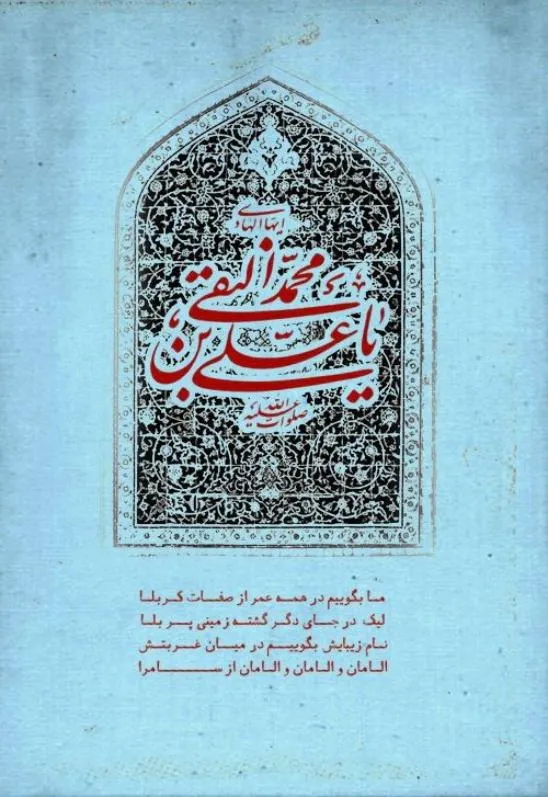 ایها الهادی
یا علی بن محمد النقی
صلوات الله علیه
ما بگوییم در همه عمر از صفات کربلا
لیک در جای دگر گشته زمینی پر بلا
نام زیبایش بگوییم در میان غربتش
الامان و الامان و الامان از سامرا